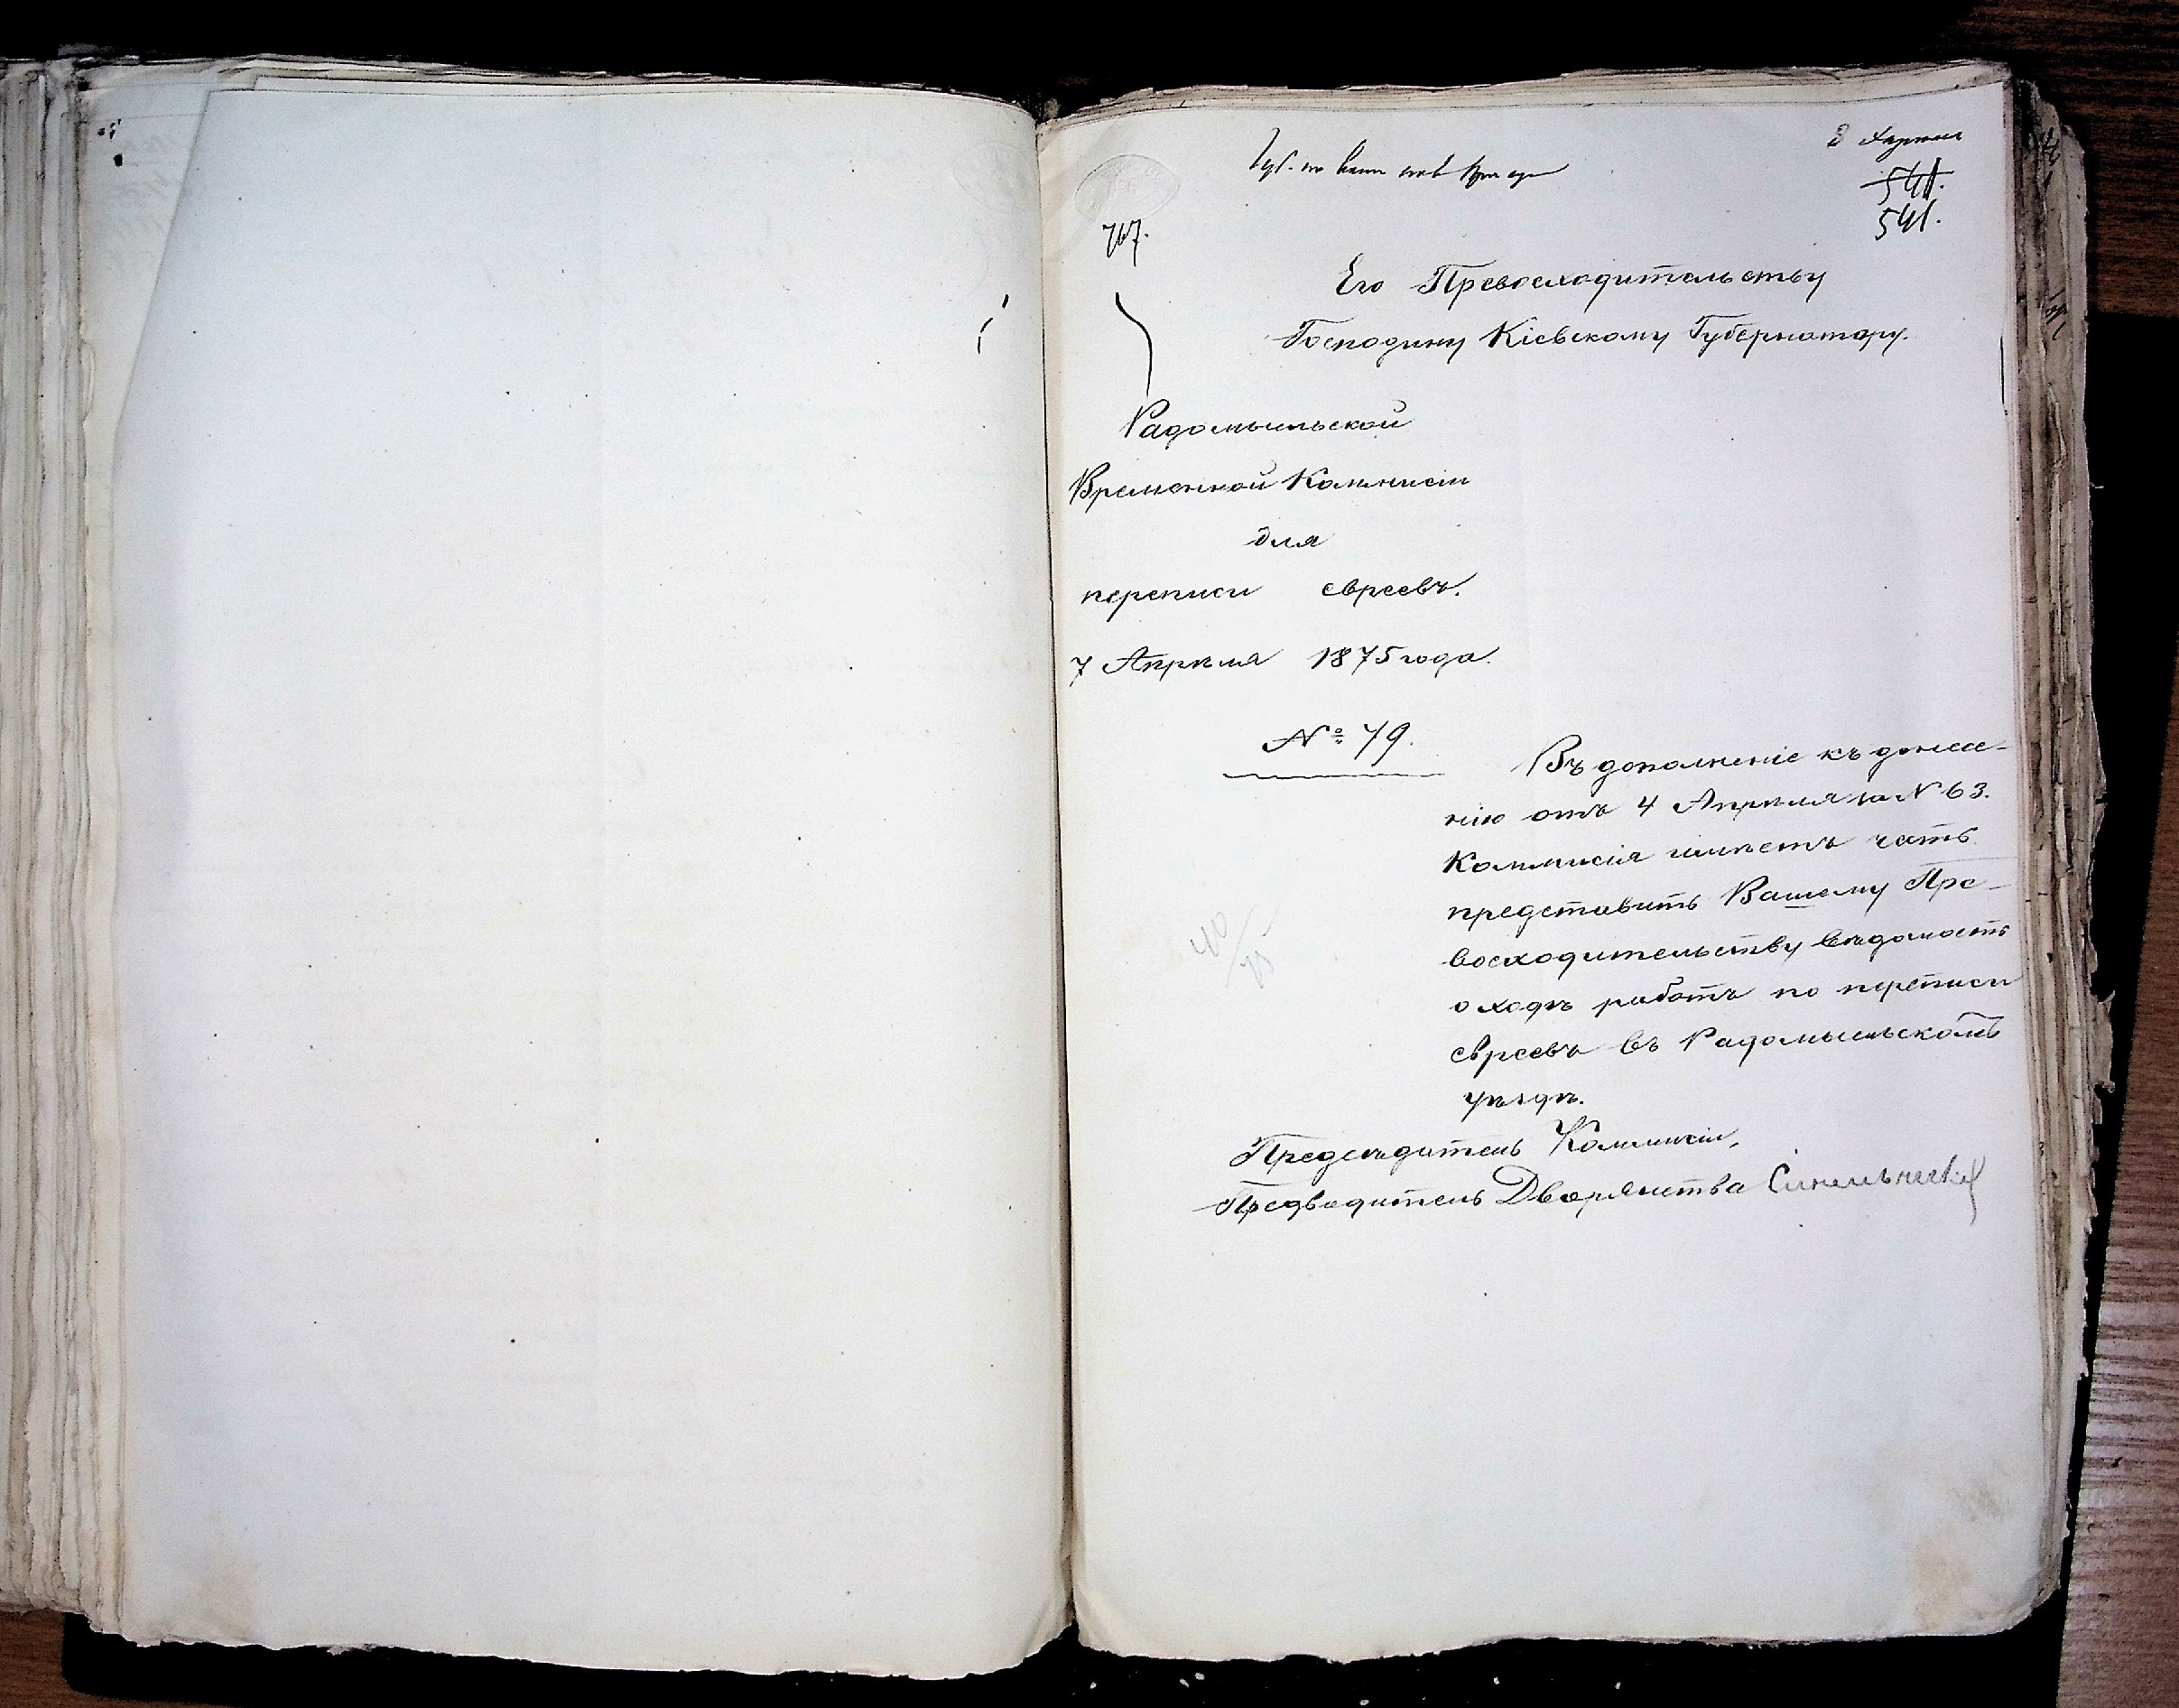 541.
541.
767.
Его Превосходительству
Господину Кіевскому Губернатору.
Радомысльской
Временной Коммисіи
для
переписи евреевъ.
7 Апрѣля 1875 года.
№ 79.
Въ дополненіе къ донесе-
нію отъ 4 Апрѣля за N 63.
Коммисія имѣетъ честь
представить Вашему Пре-
восходительству вѣдомость
о ходѣ работъ по переписи
евреевъ въ Радомысльскомъ
уѣздѣ.
Предсѣдатель Коммисіи,
Предводитель Дворянства
40/75